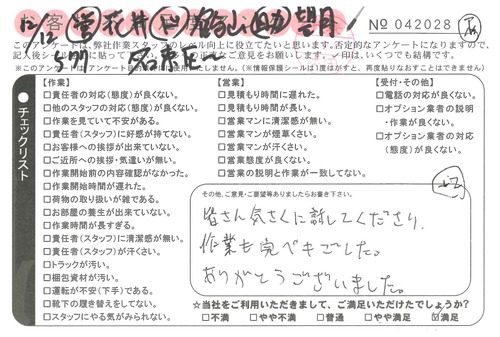 12/12 営 花井 仕 倉山 助 望月
№ 042028
このアンケートは、弊社作業スタッフのレベル向上に役立てたいと思います。否定的なアンケートになりますので、
記入後シール
※このアンケートは
(※情報保護シールは1度はがすと、再度貼りなおすことはできません)
チェックリスト
【作業】
□責任者の対応(態度)が良くない。
□他のスタッフの対応(態度)が良くない。
□作業を見ていて不安がある。
□責任者(スタッフ)に好感が持てない。
□お客様への挨拶が出来ていない。
□ご近所への挨拶・気遣いが無い。
□作業開始前の内容確認がなかった。
□作業開始時間が遅れた。
□荷物の取り扱いが雑である。
□お部屋の養生が出来ていない。
□作業時間が長すぎる。
□責任者(スタッフ)に清潔感が無い。
□責任者(スタッフ)が汗くさい。
□トラックが汚い。
□梱包資材が汚い。
□運転が不安(下手)である。
□靴下の履き替えをしてない。
□スタッフにやる気がみられない。
【営業】
□見積もり時間に遅れた。
□見積もり時間が長い。
□営業マンに清潔感が無い。
□営業マンが煙草くさい。
□営業マンが汗くさい。
□営業態度が良くない。
□営業の説明と作業が一致してない。
【受付・その他】
□電話の対応が良くない。
□オプション業者の説明
・作業が良くない。
□オプション業者の対応
(態度)が良くない。
その他、ご意見・ご要望等ありましたらお書き下さい。
皆さん気さくに話してくださり、
作業も完ペキでした。
ありがとうございました。
☆当社をご利用いただきまして、ご満足いただけたでしょうか?
□不満 □やや不満 □普通 □やや満足 ☑満足